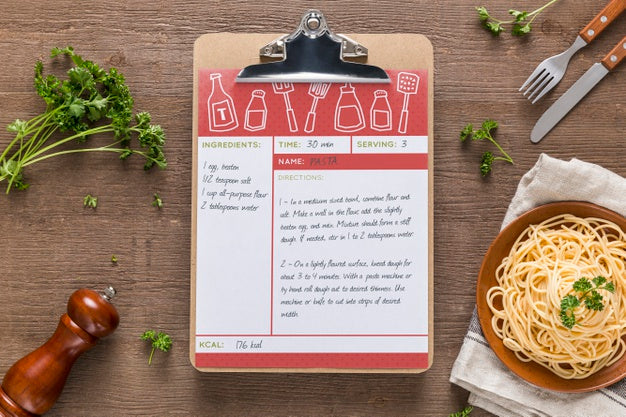 T
INGREDIENTS:
1 egg, beaten
1/2 teaspoon salt
1 cup all-purpose flour
2 tablespoons water
TIME: 30 min
SERVING: 3
NAME: PASTA
DIRECTIONS:
1 - In a medium sized bowl, combine flour and
salt. Make a well in the flour, add the slightly
beaten egg, and mix. Mixture should form a stiff
dough. If needed, stir in 1 to 2 tablespoons water.
2 - On a lightly floured surface, knead dough for
about 3 to 4 minutes. With a pasta machine or
by hand roll dough out to desired thinness. Use
machine or knife to cut into strips of desired
width.
KCAL: 176 kcal